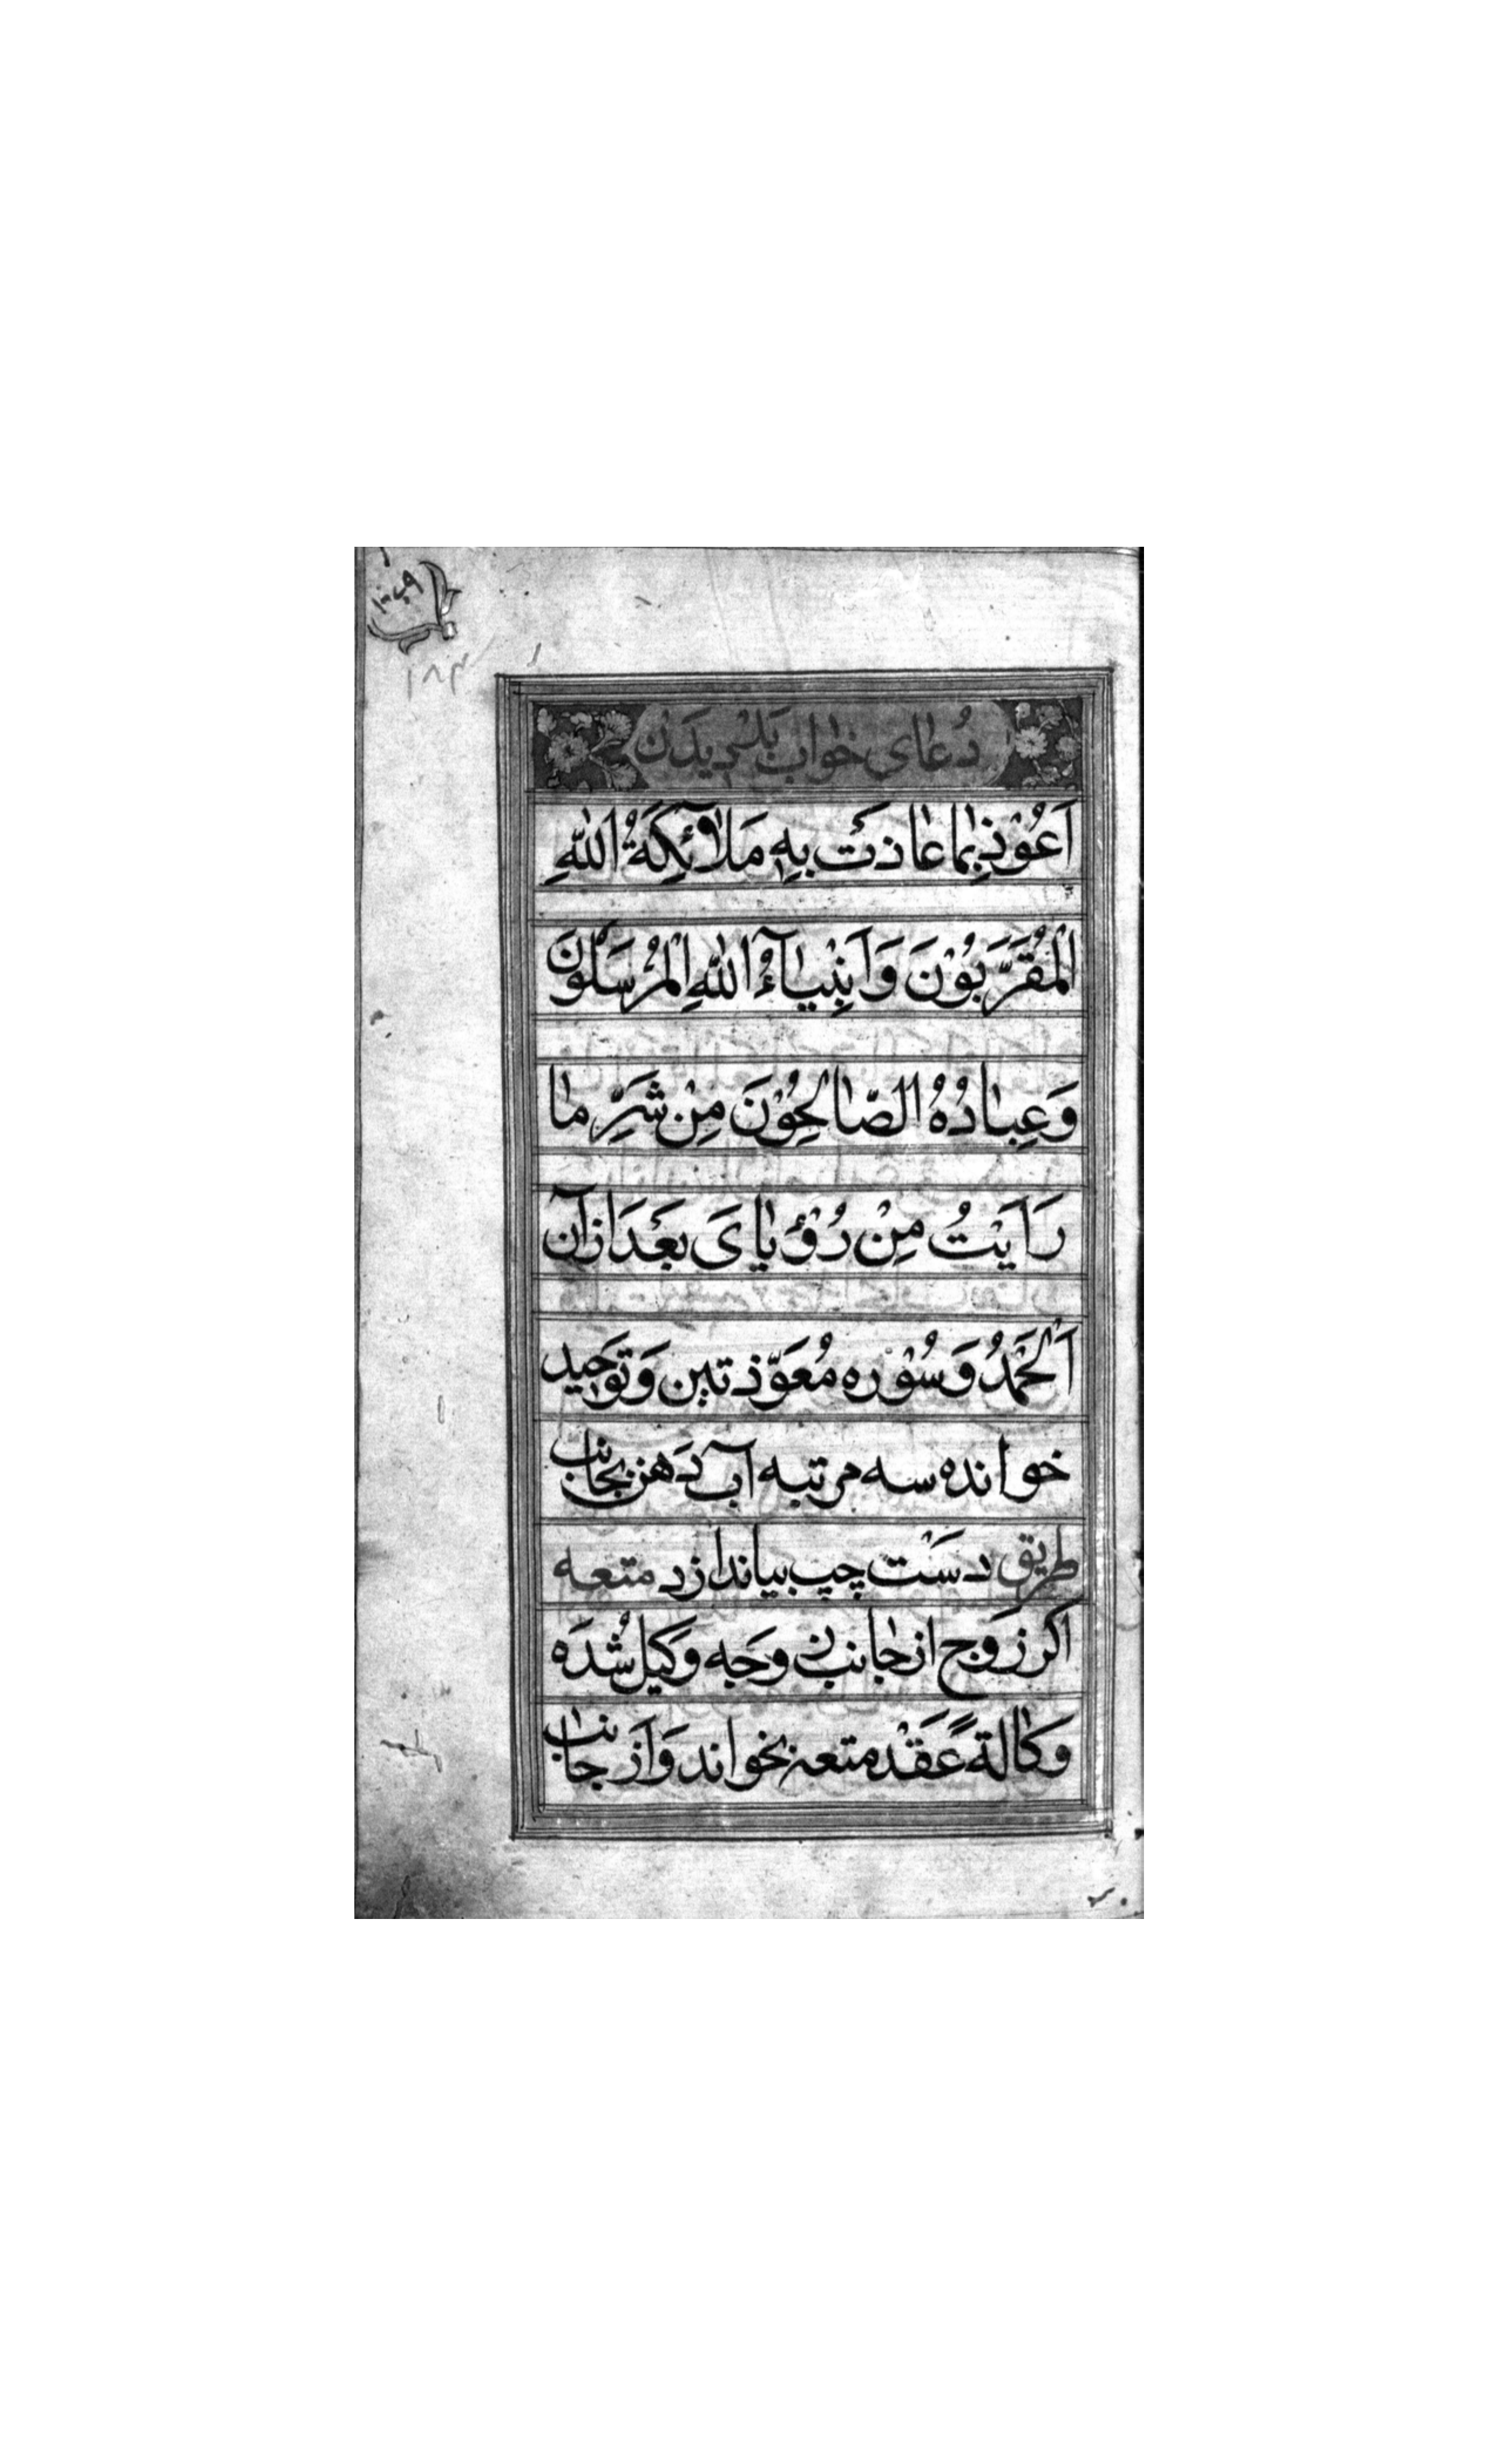 ۱۸۳
دُعای خواب بَدْ دیدَنْ
اَعُوْذُ بِمٰا عٰاذَتْ بِهِ مَلٰآئِکَةُ اللّٰهِ
الْمُقَرَّبُوْنَ وَاَنْبِیٰآءُ اللّٰهِ الْمُرْسَلُوْنَ
وَعِبٰادُهُ الصّٰالِحُوْنَ مِنْ شَرِّ مٰا
رَاَیْتُ مِنْ رُؤْیٰایَ بَعْدَ ازآن
اَلْحَمْدُ وَسُوْره مُعَوّذتین وَتوَحید
خوانده سه مرتبه آب دَهن بجانب
دسَت چپ بیاندازد طریق متعه
اکر زَوج از جٰانب زوجَه وکیل شُدَه
وَکٰالةً عَقْد متعه بخواند وَاَز جٰانب